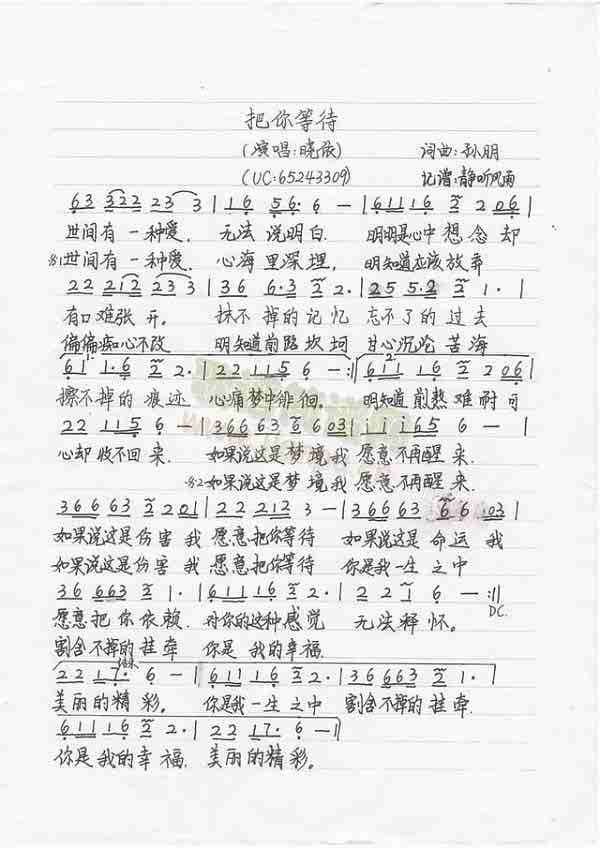 把你等待
(演唱:晓依) 词曲:孙朋
(UC:65243309) 记谱:静听风雨
63 322 23 3 | 16 56· 6 — | 61116 2 2 06 |
世间有一种爱. 无法说明白. 明明是心中想念却
世间有一种爱. 心海里深埋, 明知道应该放弃
22 212 23 3 | 36 6·3 2 2· | 25 5·2 2 1· |
有口难张开. 抹不掉的记忆 忘不了的过去
偏偏痴心不改 明知道前路坎坷 甘心沉沦苦海
61 1·6 2 2· | 22 115 6 — :| 611 16 2 2 06 |
擦不掉的痕迹 心痛梦中徘徊. 明知道煎熬难耐可
22 115 6 — | 36663 6 6 03 | i i i 65 6 — |
心却收不回来. 如果说这是梦境我愿意不再醒来.
如果说这是梦境我愿意不再醒来.
36663 2 201 | 22 212 3 — | 36663 6 6 03 |
如果说这是伤害我愿意把你等待 如果说这是命运我
如果说这是伤害我愿意把你等待 你是我一生之中
36 663 2 1· | 61116 2 2· | 22 1 6 — :||
D.C.
愿意把你依赖. 对你的这种感觉 无法释怀。
割舍不掉的挂牵 你是我的幸福.
22 17· 6 — | 61116 2 2· | 36 663 2 1· |
美丽的精彩。 你是我一生之中 割舍不掉的挂牵
61116 2 2· | 22 17· 6 — ||
你是我的幸福. 美丽的精彩。